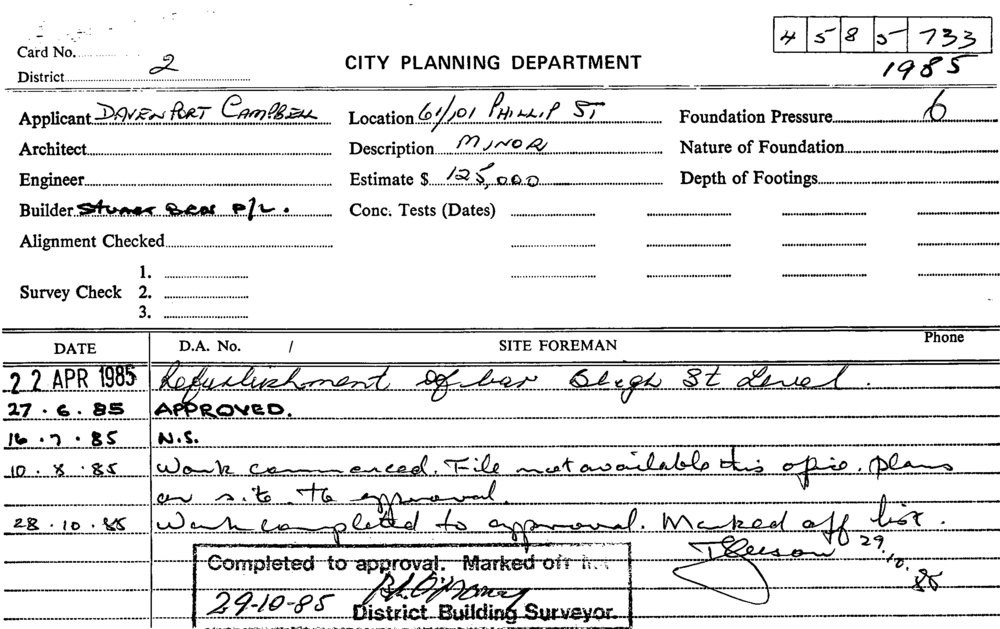 4 5 8 5 733
Card No.
1985
District 2
CITY PLANNING DEPARTMENT
Applicant DAVENPORT CAMPBELL Location 61/101 PHILLIP ST Foundation Pressure 6
Architect Description MINOR Nature of Foundation
Engineer Estimate $ 125,000 Depth of Footings
Builder P/L. Conc. Tests (Dates)
Alignment Checked
1.
Survey Check 2.
3.
DATE D.A. No. / SITE FOREMAN Phone
22 APR 1985 Refurbishment of bar Bligh St Level.
27.6.85 APPROVED.
16.7.85 N.S.
10.8.85 Work commenced. File not available this opic. plans
on site to approval.
28.10.85 Work completed to approval. Marked off list.
29.
10.
85
Completed to approval. Marked off list
29-10-85
District Building Surveyor.